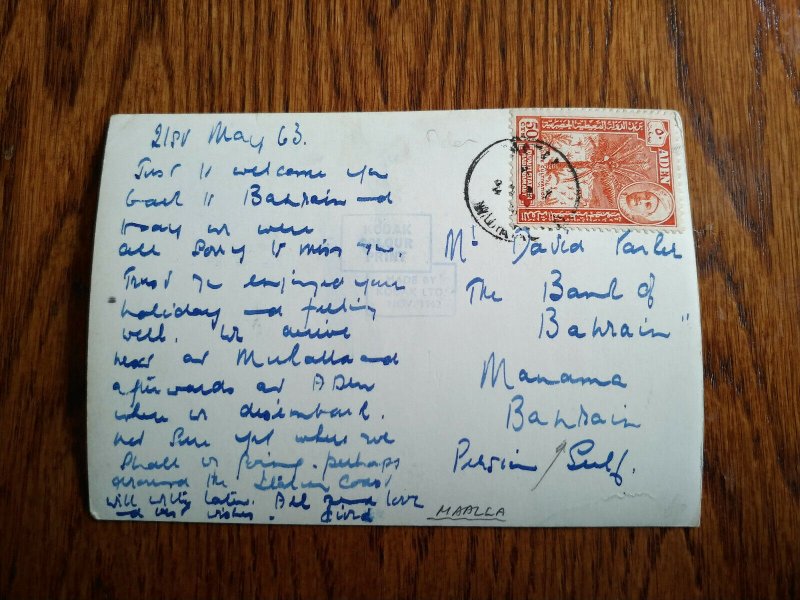 21st May 63.
Just to welcome you
back to Bahrain and
today we were
all sorry to miss you.
Trust you enjoyed your
holiday and feeling
well. We arrive
next at Mukalla and
afterwards at Aden
where we disembark.
not sure yet where we
shall be going. perhaps
around the Coast
will write later. All love
and wishes.
Mr David Parler
The Bank of
Bahrain"
Manama
Bahrain
Persian Gulf.
MAALLA
50
ADEN
KODAK
PRINT